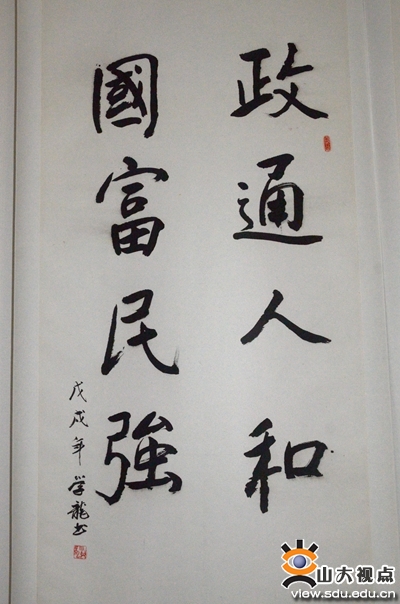 政通人和
國富民強
戊戌年 学龍书
山大视点
www.view.sdu.edu.cn